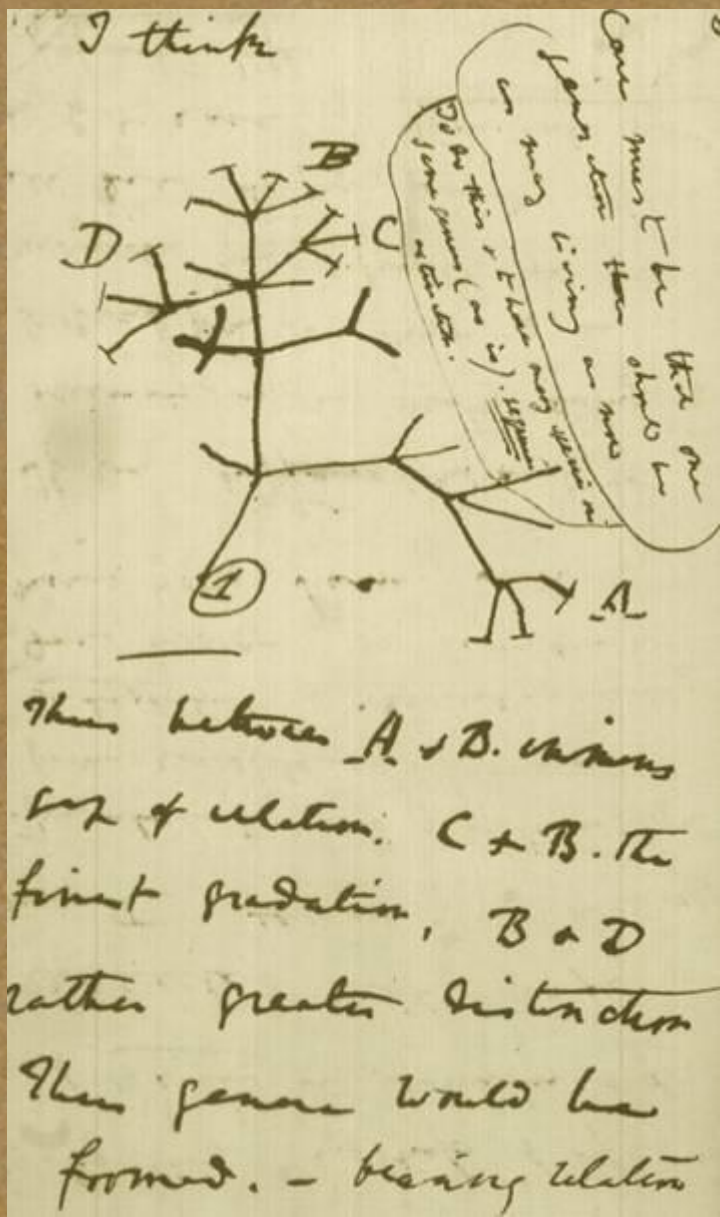 I think
Case must be that one
generation then should be
as many living as now
To do this & to have many species in
same genus (as is). requires
extinction.
B
C
D
1
A
Thus between A & B. immens
gap of relation. C & B. the
finest gradation, B & D
rather greater distinction
Thus genera would be
formed. — bearing relation